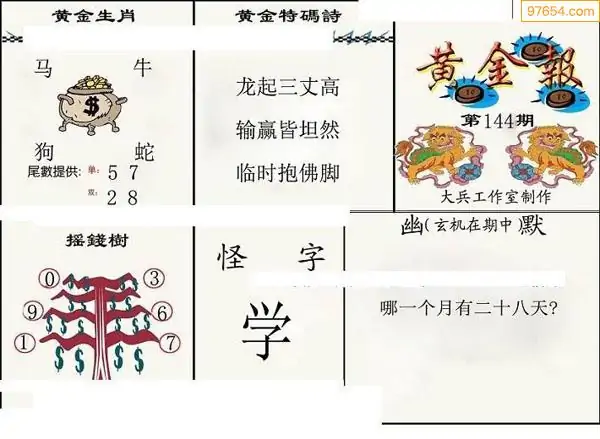 97654.com
黄金生肖
马 牛
狗 蛇
尾數提供: 单: 5 7
双: 2 8
黄金特碼詩
龙起三丈高
输赢皆坦然
临时抱佛脚
黄金報
第144期
大兵工作室制作
摇錢樹
0 3
9 6
1 7
怪 字
学
幽(玄机在期中)默
哪一个月有二十八天?